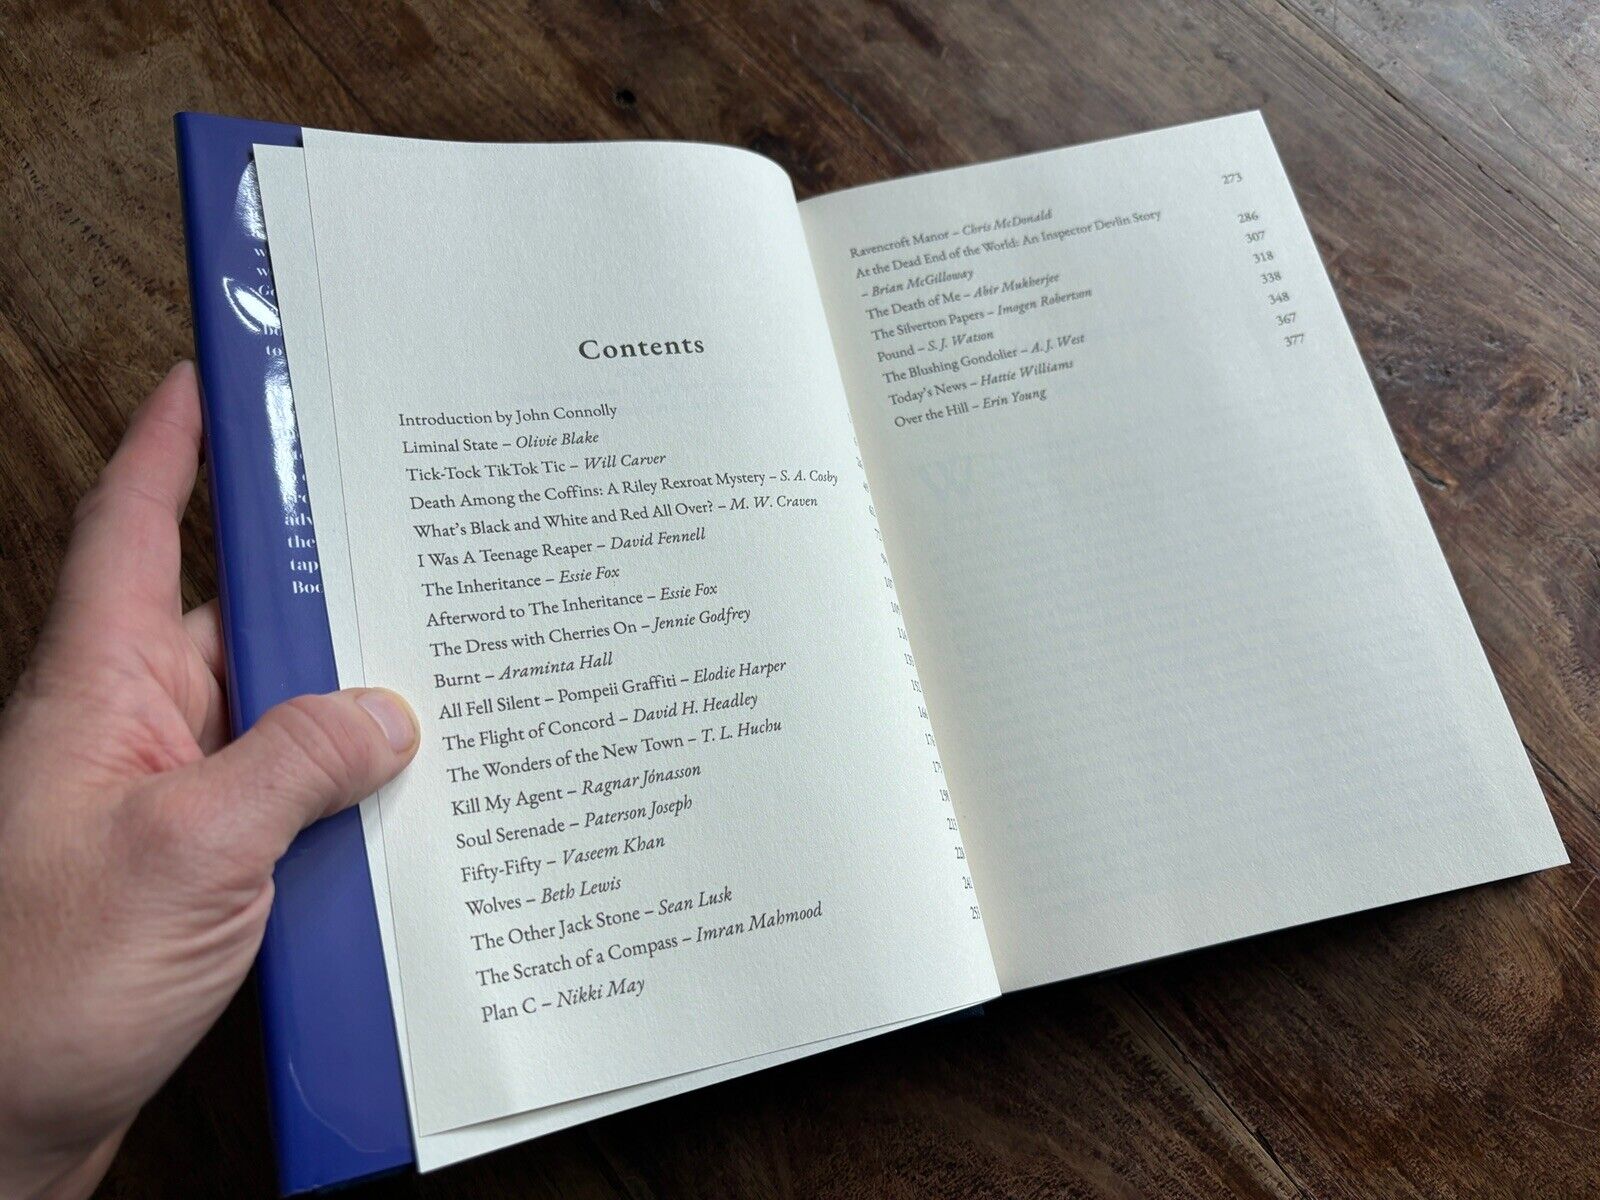 Contents
Introduction by John Connolly
Liminal State – Olivie Blake
Tick-Tock TikTok Tic – Will Carver
Death Among the Coffins: A Riley Rexroat Mystery – S. A. Cosby
What's Black and White and Red All Over? – M. W. Craven
I Was A Teenage Reaper – David Fennell
The Inheritance – Essie Fox
Afterword to The Inheritance – Essie Fox
The Dress with Cherries On – Jennie Godfrey
Burnt – Araminta Hall
All Fell Silent – Pompeii Graffiti – Elodie Harper
The Flight of Concord – David H. Headley
The Wonders of the New Town – T. L. Huchu
Kill My Agent – Ragnar Jónasson
Soul Serenade – Paterson Joseph
Fifty-Fifty – Vaseem Khan
Wolves – Beth Lewis
The Other Jack Stone – Sean Lusk
The Scratch of a Compass – Imran Mahmood
Plan C – Nikki May
Ravencroft Manor – Chris McDonald 273
At the Dead End of the World: An Inspector Devlin Story
– Brian McGilloway 286
The Death of Me – Abir Mukherjee 307
The Silverton Papers – Imogen Robertson 318
Pound – S. J. Watson 338
The Blushing Gondolier – A. J. West 348
Today's News – Hattie Williams 367
Over the Hill – Erin Young 377